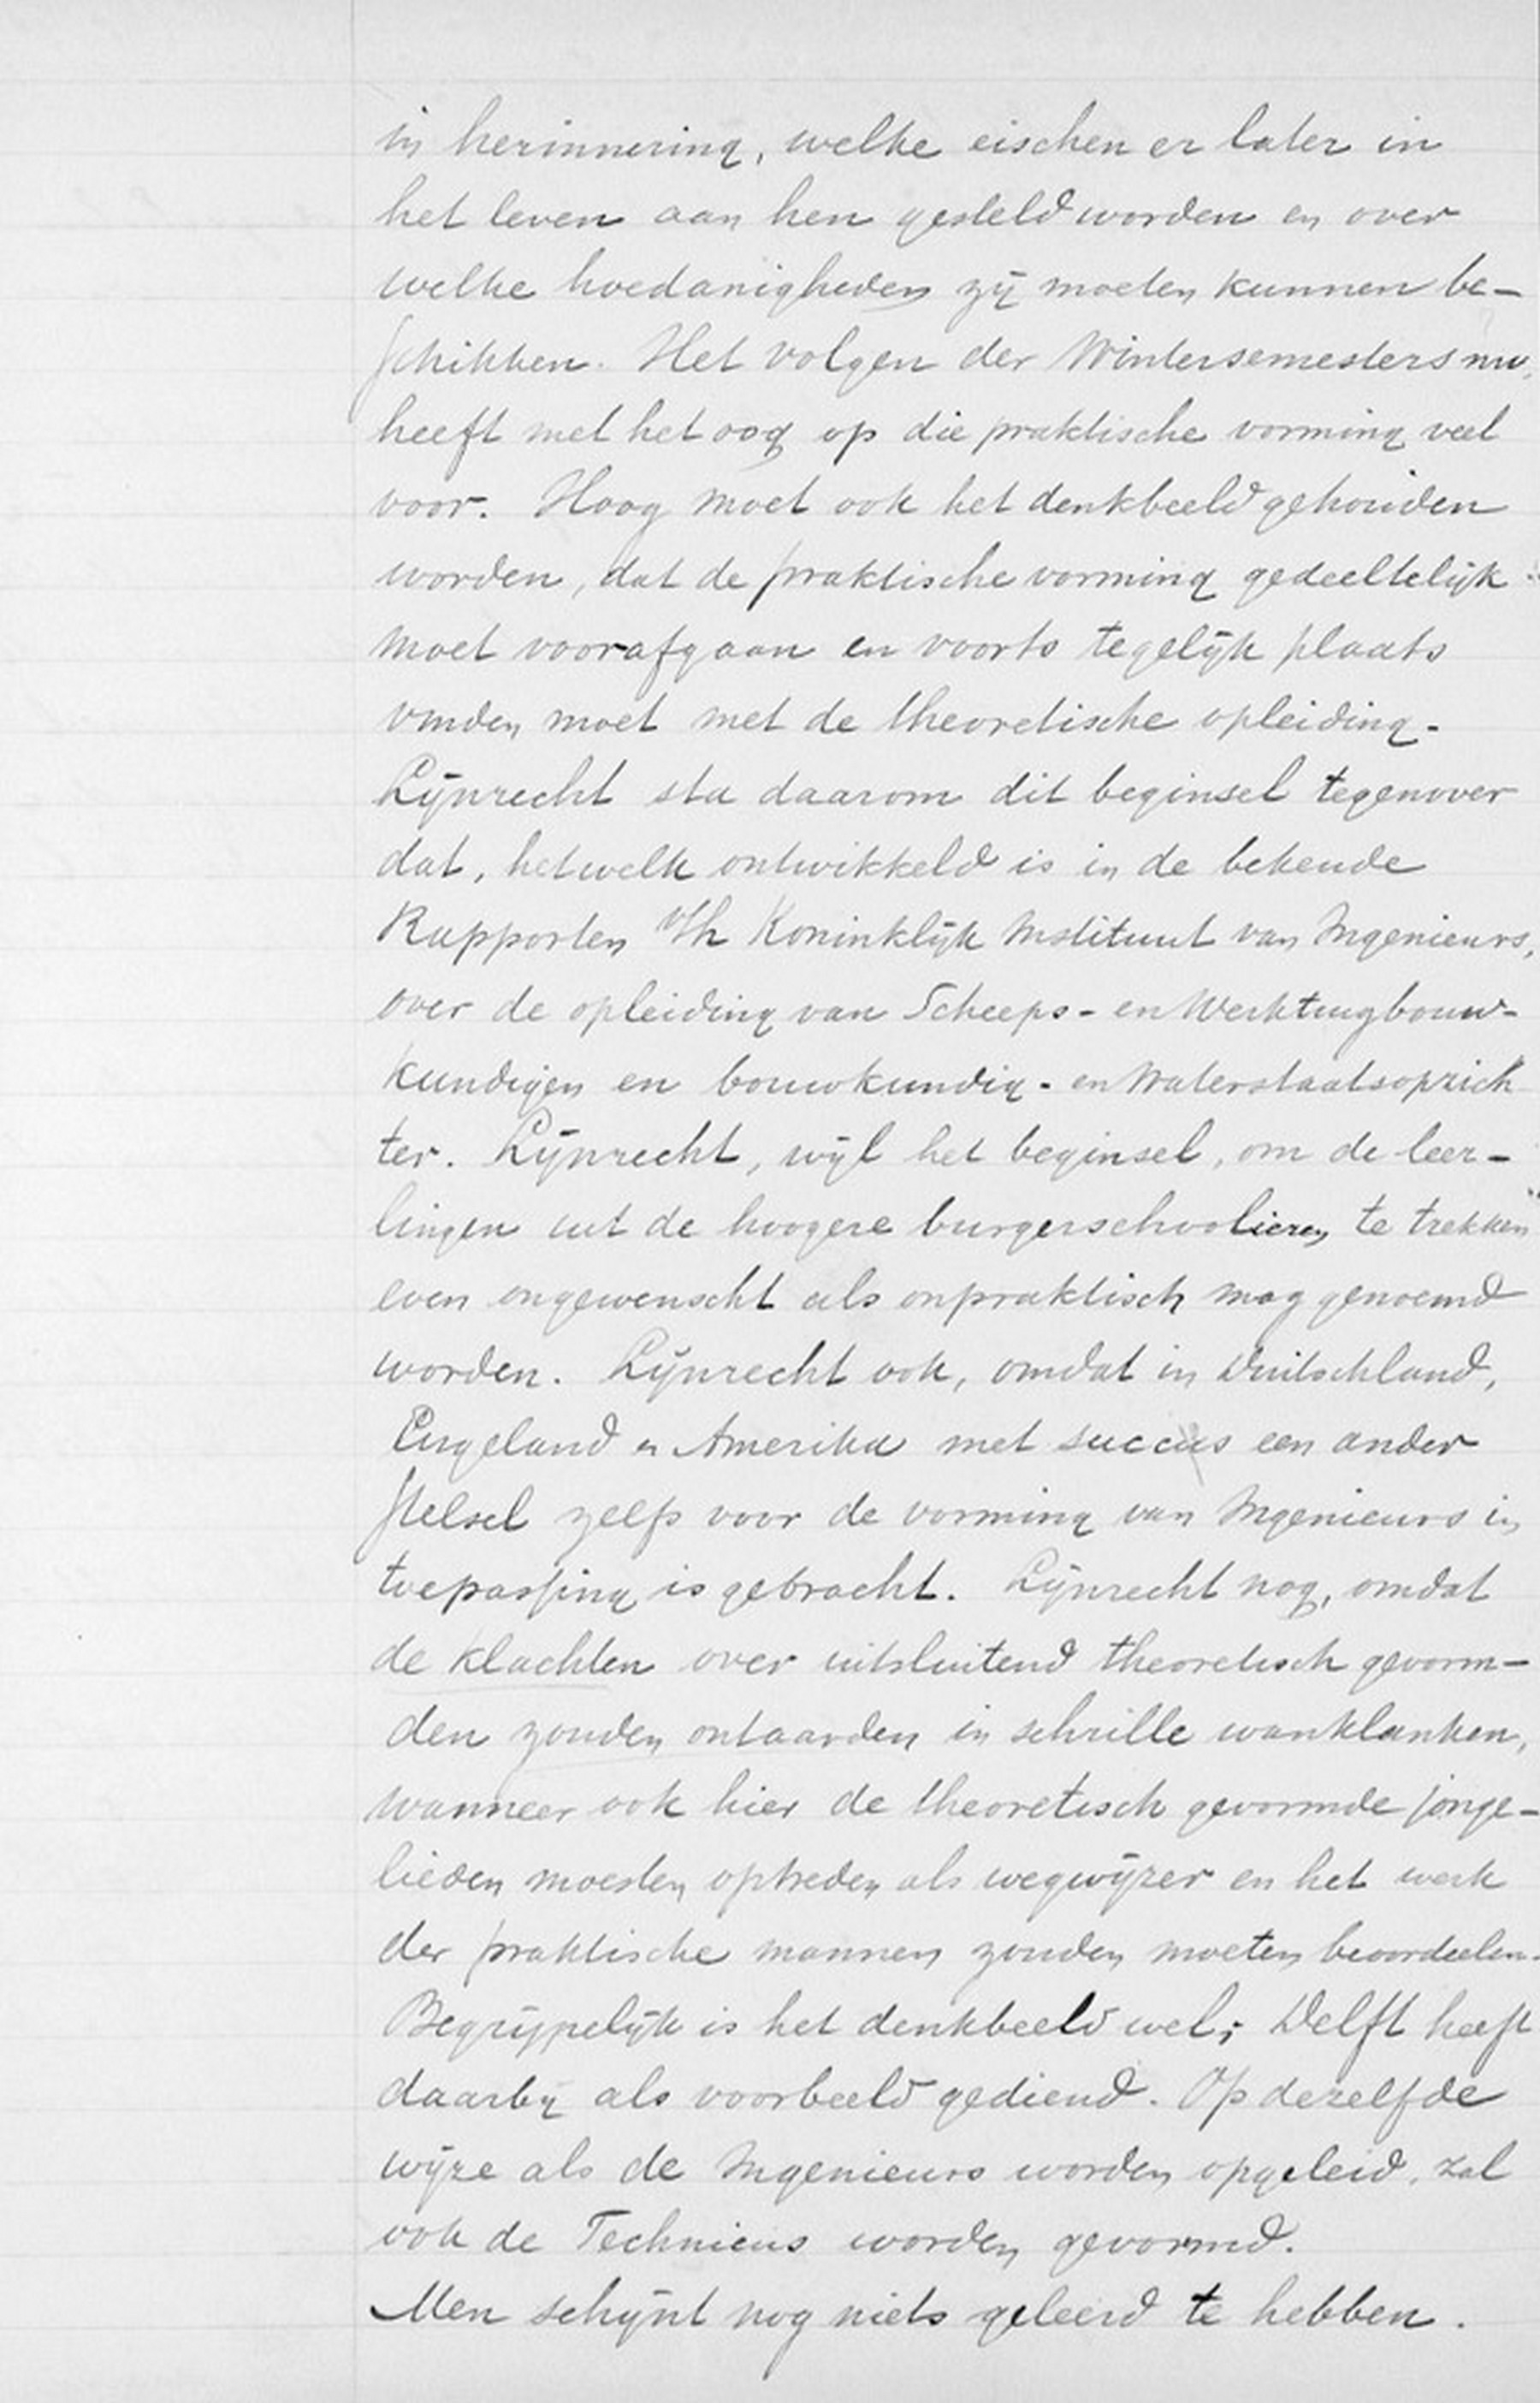 in herinnering, welke eischen er later in
het leven aan hen gesteld worden en over
welke hoedanigheden zij moeten kunnen be-
schikken. Het volgen der Wintersemesters nu,
heeft met het oog op die praktische vorming veel
voor. Hoog moet ook het denkbeeld gehouden
worden, dat de praktische vorming gedeeltelijk
moet voorafgaan en voorts tegelijk plaats
vinden moet met de theoretische opleiding.
Lijnrecht sta daarom dit beginsel tegenover
dat, hetwelk ontwikkeld is in de bekende
Rapporten v/h Koninklijk Instituut van Ingenieurs,
over de opleiding van Scheeps- en Werktuigbouw-
kundigen en bouwkundig- en Waterstaatsopzich
ter. Lijnrecht, wijl het beginsel, om de leer-
lingen uit de hoogere burgerscholieren te trekken
even ongewenscht als onpraktisch mag genoemd
worden. Lijnrecht ook, omdat in Duitschland,
Engeland en Amerika met succes een ander
stelsel zelfs voor de vorming van Ingenieurs in
toepassing is gebracht. Lijnrecht nog, omdat
de klachten over uitsluitend theoretisch gevorm-
den zouden ontaarden in schrille wanklanken,
wanneer ook hier de theoretisch gevormde jonge-
lieden moesten optreden als wegwijzer en het werk
der praktische mannen zouden moeten beoordeelen.
Begrijpelijk is het denkbeeld wel; Delft heeft
daarbij als voorbeeld gediend. Op dezelfde
wijze als de Ingenieurs worden opgeleid, zal
ook de Technicus worden gevormd.
Men schijnt nog niets geleerd te hebben.